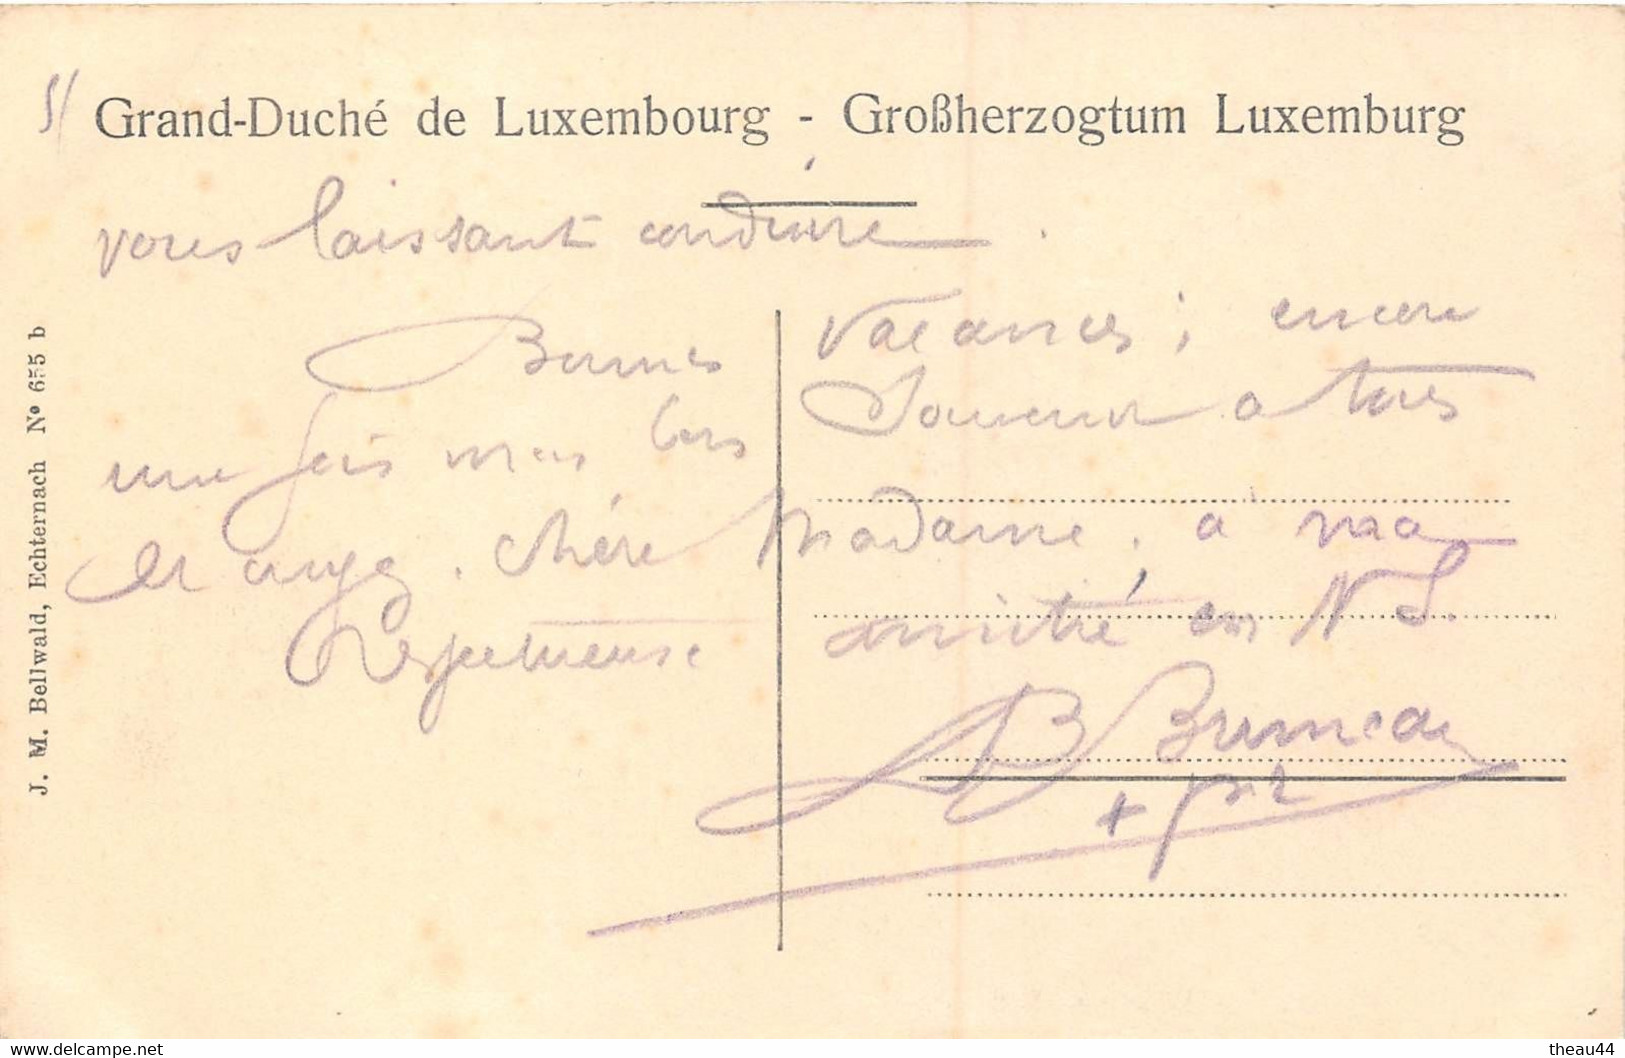 5/
Grand-Duché de Luxembourg - Großherzogtum Luxemburg
vous laissant conduire.
Bonnes vacances; encore
une fois mon bon Souvenir a tous
et croyez, chère Madame, a ma
Respectueuse amitié en N S.
B Bruneau
+ ptr
J. M. Bellwald, Echternach Nº 655 b
theau44